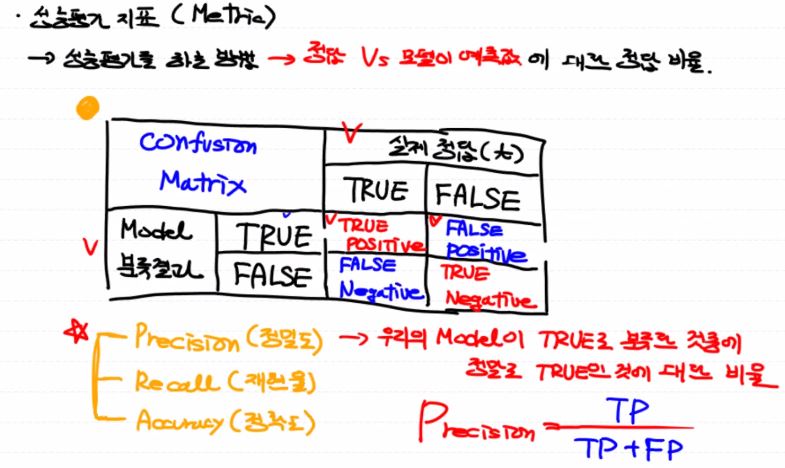 · 성능평가 지표 (Metric)
→ 성능평가를 하는 방법 → 정답 Vs 모델이 예측값에 대한 정답 비율.
Confusion
Matrix
실제 정답(t)
TRUE FALSE
Model
분류결과
TRUE
TRUE
POSITIVE
FALSE
POSITIVE
FALSE
FALSE
Negative
TRUE
Negative
Precision (정밀도) → 우리의 Model이 TRUE로 분류한 것중에
정말로 TRUE인 것에 대한 비율
Recall (재현율)
Accuracy (정확도)
Precision = TP
TP+FP